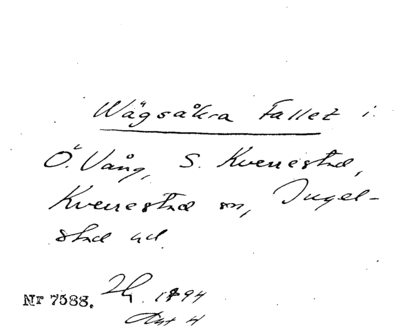 Wägsåkra Fallet i
Ö. Vång, S. Kverrestad,
Kverrestad sn, Ingel-
stad hd.
Nr 7588. 1894
Akt 4